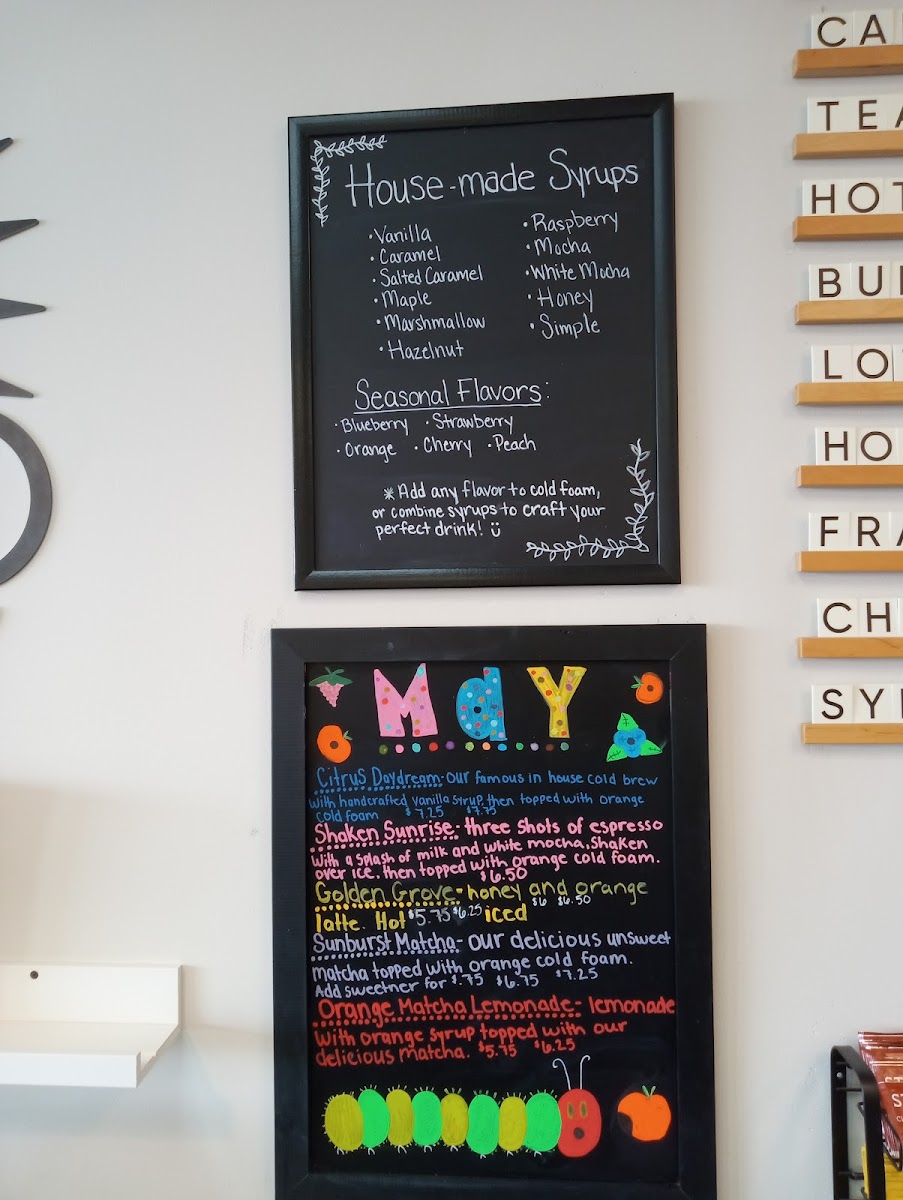 House-made Syrups
• Vanilla
• Caramel
• Salted Caramel
• Maple
• Marshmallow
• Hazelnut
• Raspberry
• Mocha
• White Mocha
• Honey
• Simple
Seasonal Flavors:
• Blueberry • Strawberry
• Orange • Cherry • Peach
* Add any flavor to cold foam,
or combine syrups to craft your
perfect drink! ü
MaY
Citrus Daydream-our famous in house cold brew
with handcrafted vanilla syrup then topped with orange
cold foam $7.25 $7.75
Shaken Sunrise- three shots of espresso
with a splash of milk and white mocha, shaken
over ice, then topped with orange cold foam.
$6.50
Golden Grove- honey and orange
latte. Hot $5.75 $6.25 iced $6 $6.50
Sunburst Matcha- our delicious unsweet
matcha topped with orange cold foam.
Add sweetner for $.75 $6.75 $7.25
Orange Matcha Lemonade- lemonade
with orange syrup topped with our
delicious matcha. $5.75 $6.25
CA
TEA
HOT
BU
LO
HO
FRA
CH
SY